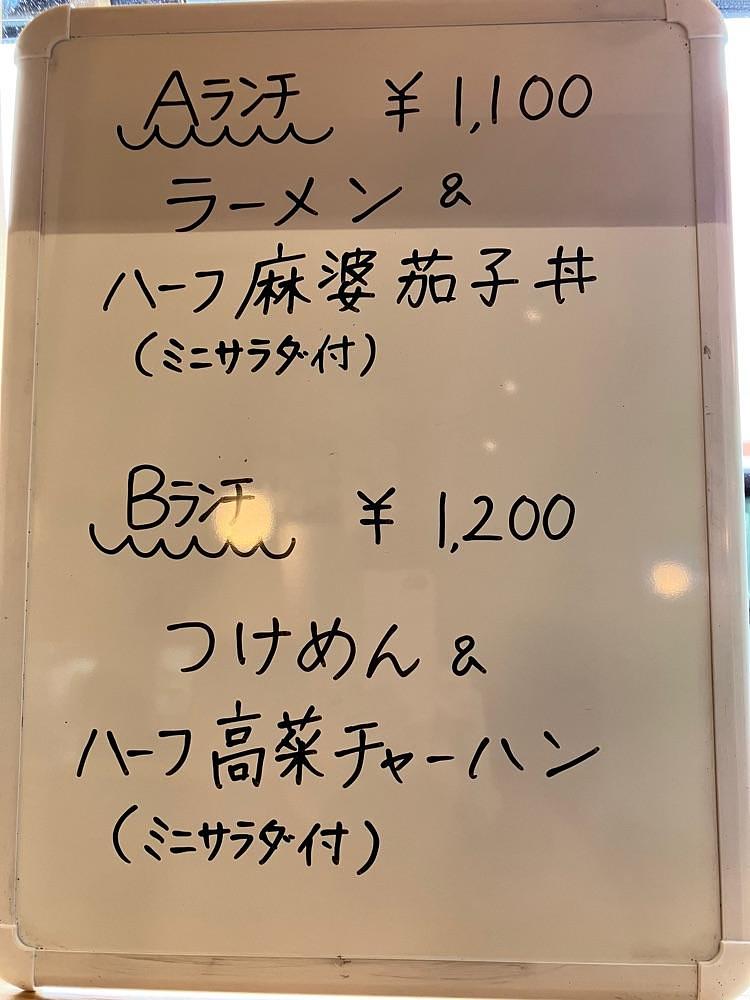 Aランチ ¥1,100
ラーメン &
ハーフ麻婆茄子丼
(ミニサラダ付)
Bランチ ¥1,200
つけめん &
ハーフ高菜チャーハン
(ミニサラダ付)